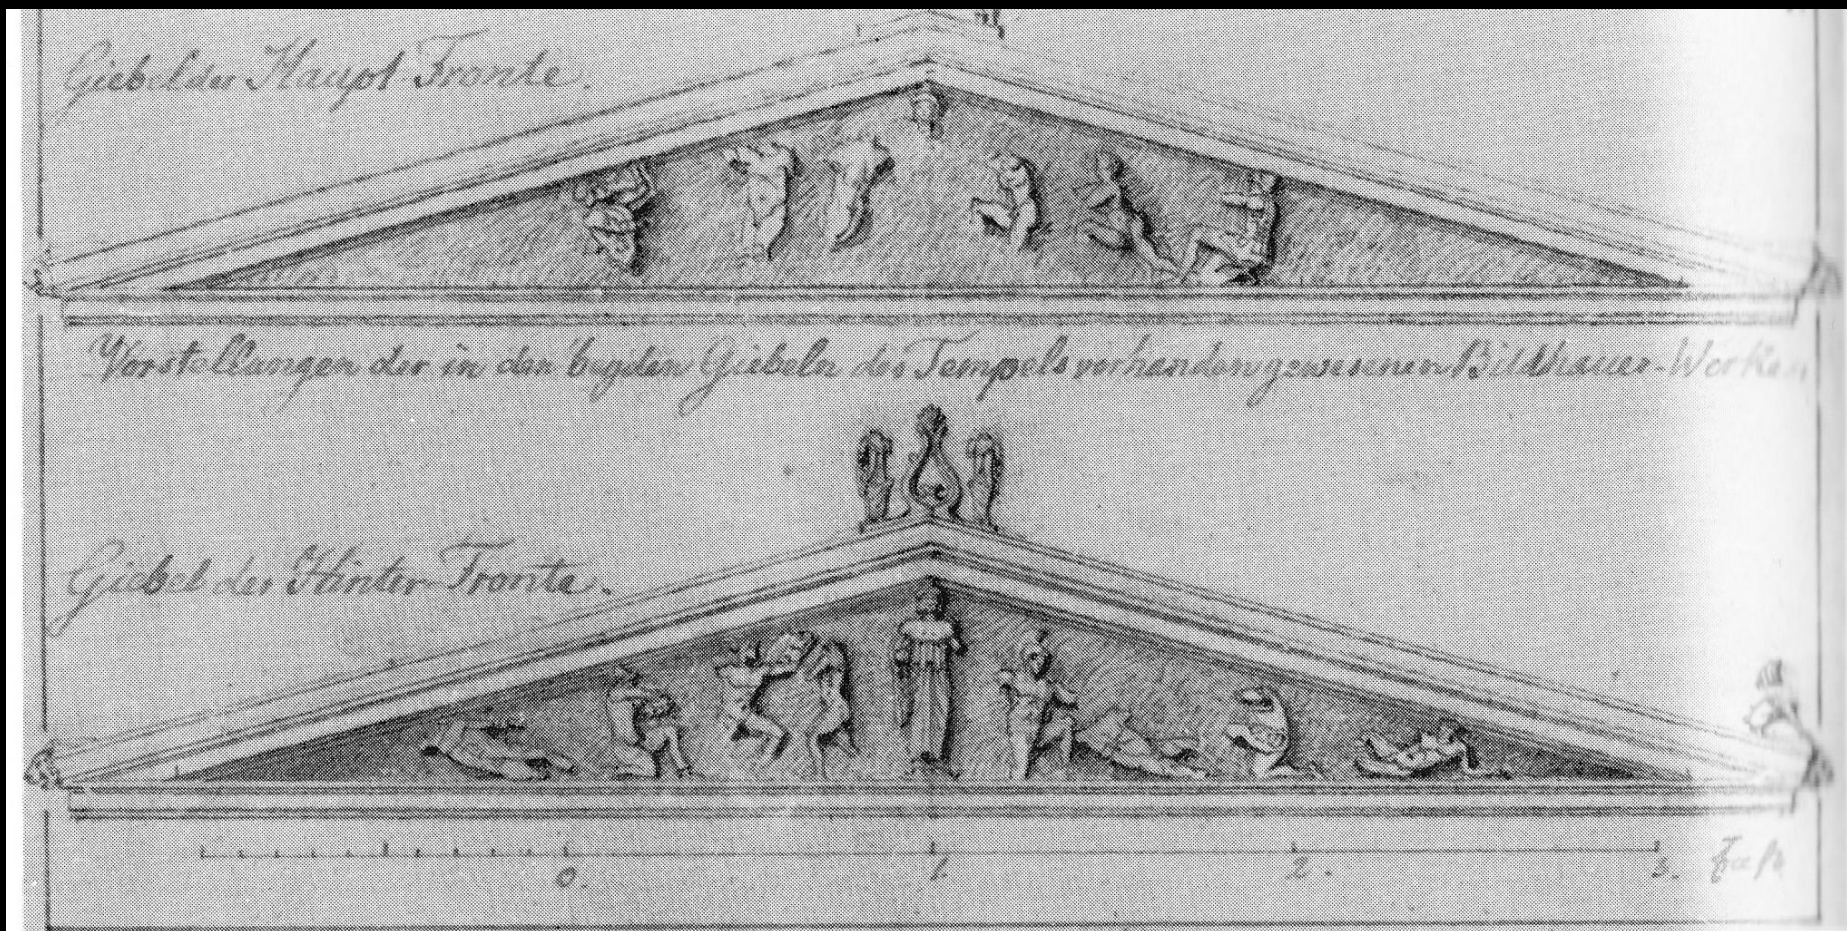 Giebel der Haupt-Fronte.
Vorstellungen der in den beyden Giebeln des Tempels vorhanden gewesenen Bildhauer-Werken
Giebel der Hinter-Fronte.
0. 1. 2. 3. Fuſs